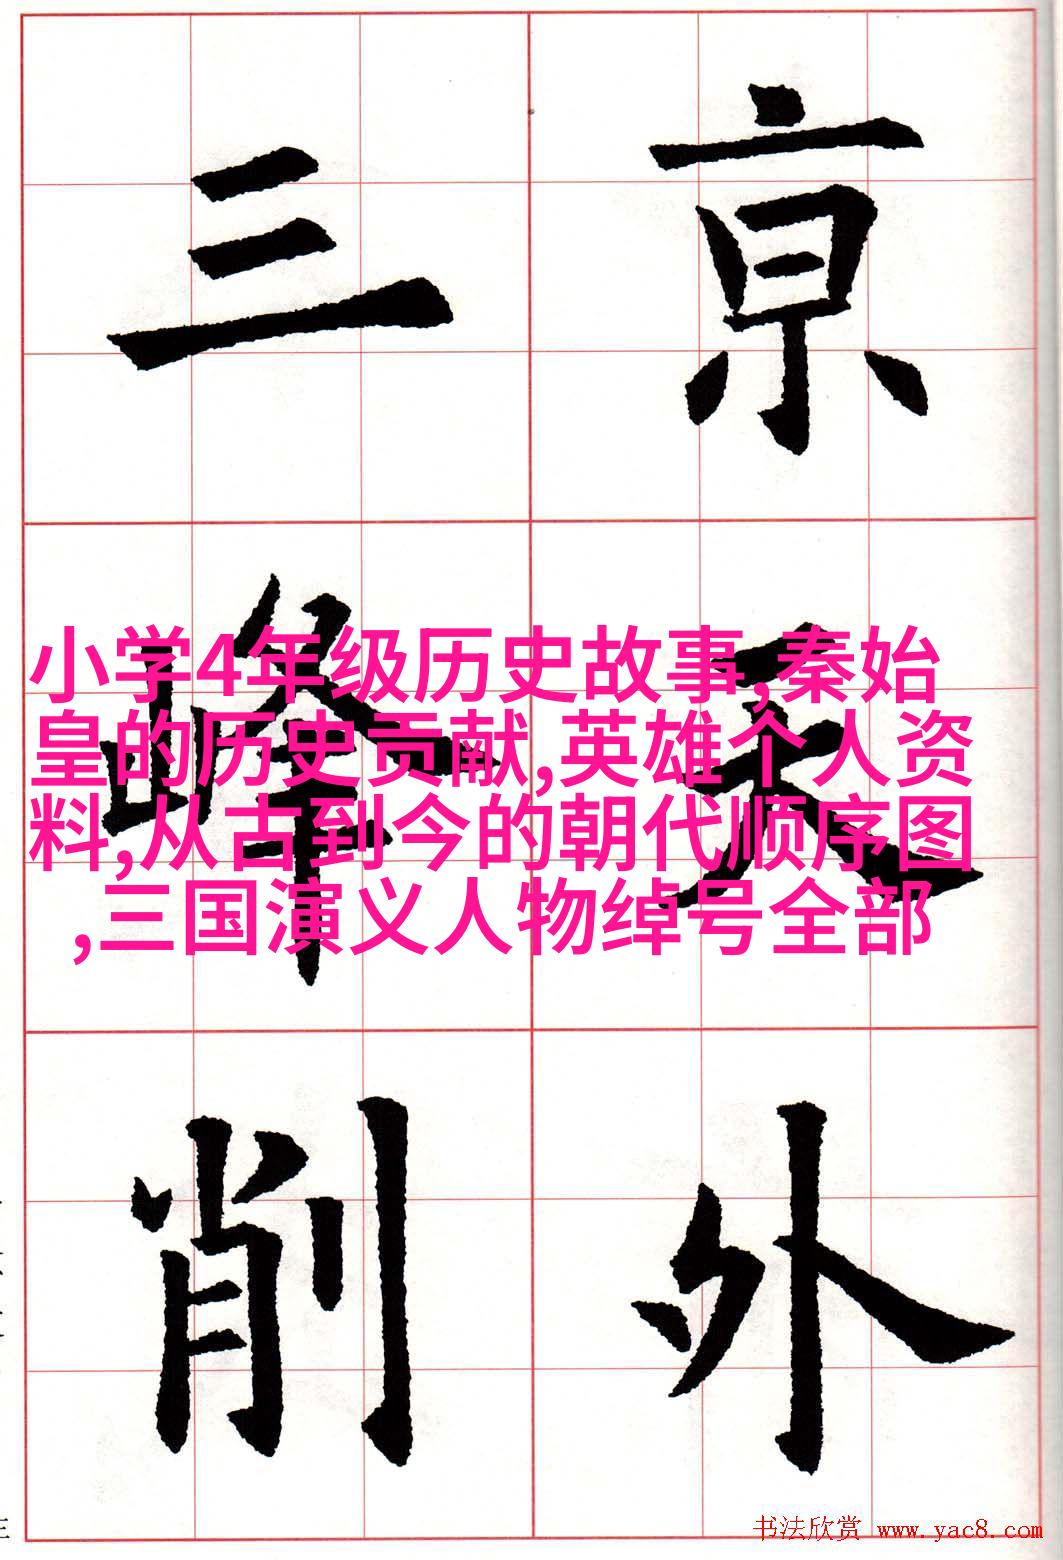 亰天外
三峰削
小学4年级历史故事,秦始
皇的历史贡献,英雄个人资
料,从古到今的朝代顺序图
,三国演义人物绰号全部
书法欣赏 www.yac8.com